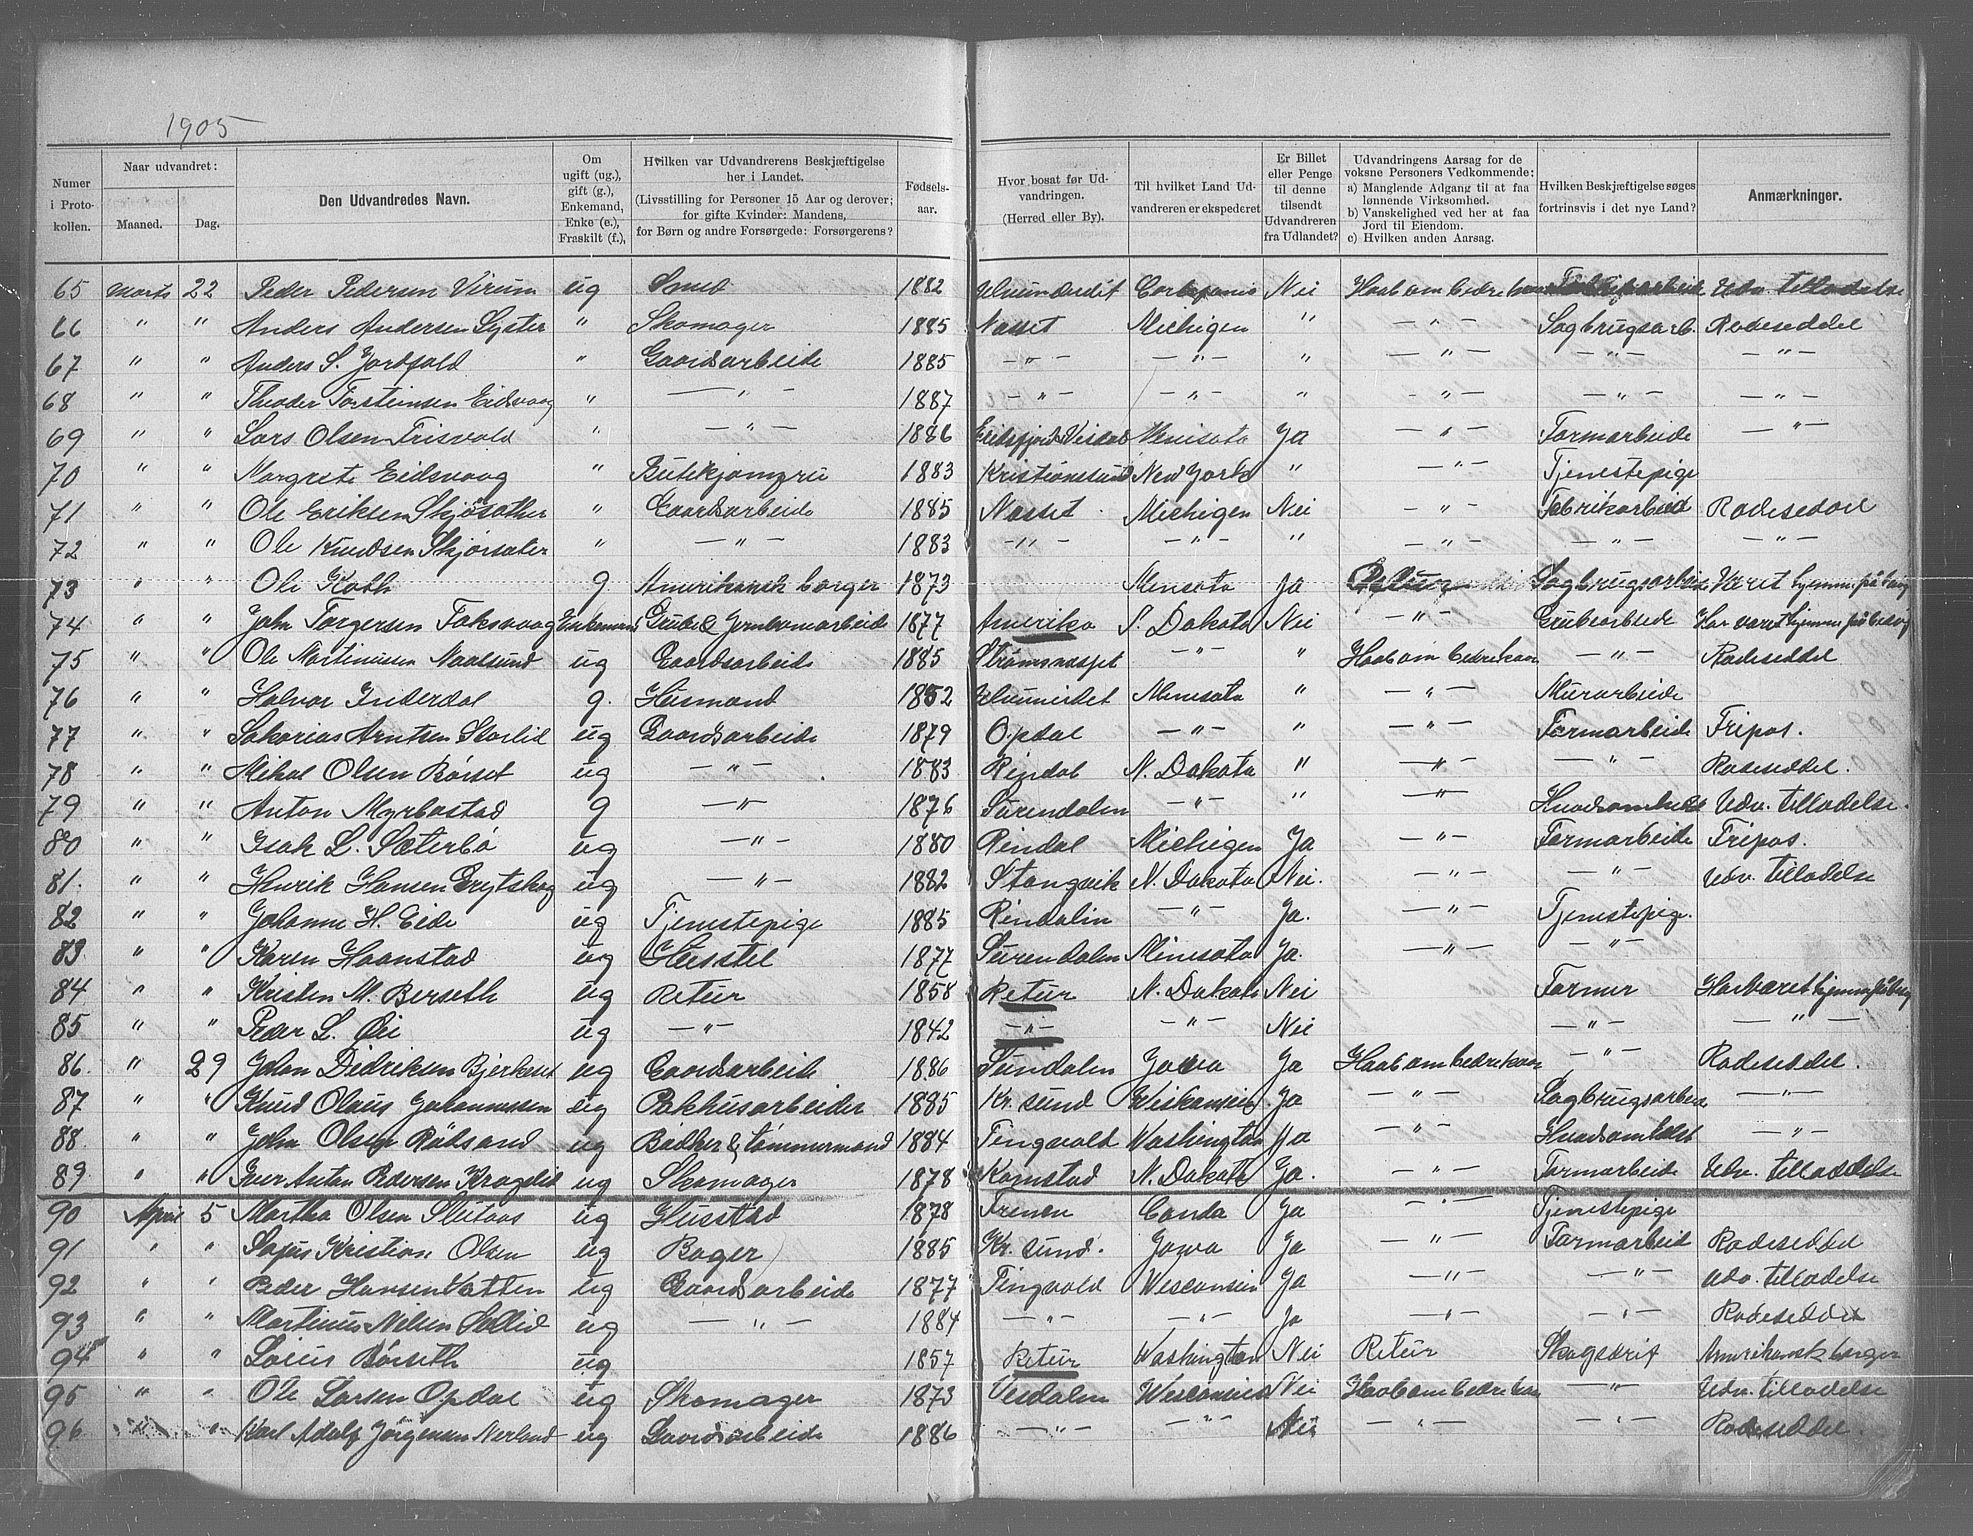 1905
Numer i Protokollen. | Naar udvandret: Maaned. | Dag. | Den Udvandredes Navn. | Om ugift (ug.), gift (g.), Enkemand, Enke (e.), Fraskilt (f.), | Hvilken var Udvandrerens Beskjæftigelse her i Landet. (Livsstilling for Personer 15 Aar og derover; for gifte Kvinder: Mandens, for Børn og andre Forsørgede: Forsørgerens? | Fødselsaar. | Hvor bosat før Udvandringen. (Herred eller By). | Til hvilket Land Udvandreren er ekspederet | Er Billet eller Penge til denne tilsendt Udvandreren fra Udlandet? | Udvandringens Aarsag for de voksne Personers Vedkommende: a) Manglende Adgang til at faa lønnende Virksomhed. b) Vanskelighed ved her at faa Jord til Eiendom. c) Hvilken anden Aarsag. | Hvilken Beskjæftigelse søges fortrinsvis i det nye Land? | Anmærkninger.
65 Marts 22 Peder Pedersen Virum ug Smed 1882 Nei Haab om bedre Udv. tilladelse
66 " " Anders Andersen Syster " Skomager 1885 Nasset Michigen " — " — Sagbrugsarb Radeseddel
67 " " Anders S. Jordfald " Gaardsarbeide 1885 — " — — " — " — " — — " — — " —
68 " " Theoder Torsteinsen Eidsvaag " — " — 1887 — " — — " — " — " — — " — — " —
69 " " Lars Olsen Trisvold " — " — 1886 Minisota Ja — " — Farmarbeide — " —
70 " " Margrete Eidsvaag " Butikjomfru 1883 Kristiansund New York " — " — Tjenestepige
71 " " Ole Eriksen Skjøsather " Gaardsarbeide 1885 Nasset Michigen Nei — " — Fabrikarbeid Radeseddel
72 " " Ole Knudsen Skjørsater " — " — 1883 — " — — " — " — " — — " — — " —
73 " " Ole Roth g. Amerikansk borger 1873 Minsota Ja Retur Sagbrugsarbeide Været hjemme på besøg
74 " " John Torgersen Foksvaag Enkemand Grube & Jernbanearbeide 1877 Amerika S. Dakota Nei — " — Grubearbeide Har været hjemme på besøg
75 " " Ole Martinussen Naalsund ug Gaardsarbeide 1885 Strømsnasset — " — " Haab om bedre kaar — " — Radeseddel
76 " " Halvor Inderdal g. Husmand 1852 Minisota " — " — Murarbeide
77 " " Sakarias Arntsen Storlid ug Gaardsarbeide 1879 Opdal — " — " — " — Farmarbeide Fripas.
78 " " Mikal Olsen Børset ug — " — 1883 Rindal N. Dakota " — " — — " — Radeseddel.
79 " " Anton Myrbostad g — " — 1876 Surendalen — " — " — " — Hvadsomhelst Udv. tilladelse.
80 " " Isak L. Sæterbø ug — " — 1880 Rindal Michigen Ja — " — Farmarbeide Fripas.
81. " " Henrik Hansen ug — " — 1882 Stangvik N. Dakota Nei. — " — — " — Udv. tilladelse
82 " " Johanne H. Eide ug Tjenestepige 1885 Rindalin — " — Ja. — " — Tjenestepige.
83 " " Karen Haanstad ug Husstel 1877 Surendalen Minisota Ja. — " — — " —
84 " " Kristen M. Berseth ug Retur 1858 Retur N. Dakota Nei Farmer Har været hjemme på besøg
85 " " Peder L. Øie ug — " — 1842 — " — — " — Nei — " — — " —
86. " 29 Johan Didriksen Bjerkeset ug Gaardsarbeide 1886 Sundalen Jowa Ja Haab om bedre kaar — " — Radeseddel.
87 " " Knud Olaus Johannessen ug Pakhusarbeider 1885 Kr. sund Wiskonsin Ja — " — Sagbrugsarbeid — " —
88 " " John Olsen Rødsand ug Bødker & tømmermand 1884 Tingvold Washington Ja — " — Hvadsomhelst — " —
89 " " Iver Anton Pedersen Kragelid ug Skomager 1878 Kornstad N. Dakota Ja. — " — Farmarbeid Udv. tilladelse
90 April 5 Martha Olsen ug Husstad 1878 Frenen Canda Ja — " — Tjenestepige
91 " " Sofus Kristian Olsen ug Bager 1885 Kr. sund. Jowa Ja — " — Farmarbeid Radeseddel
92 " " Peder Hansen Vatten ug Gaardsarbeide 1877 Tingvold Wesconsin Ja — " — — " — Udv. tilladelse
93 " " Martinus Nilsen ug — " — 1884 — " — — " — Ja — " — — " — Radeseddel
94 " " Børseth ug 1857 Retur Washington Nei Retur Skogsdrif Amerikansk borger
95 " " Ole Larsen Opdal ug Skomager 1873 Vesdalen Wesconsin Nei Haab om bedre kaar — " — Udv. tilladelse
96 " " Karl Adolf Jørgensen Nerland ug Gaardsarbeide 1886 — " — — " — Nei — " — — " — Radeseddel.